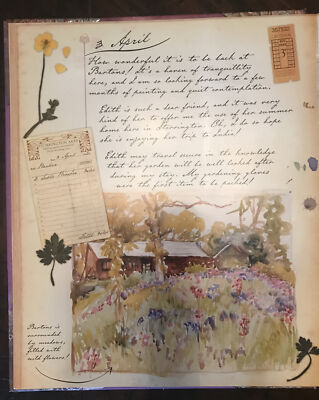 3 April
How wonderful it is to be back at
Bartons! It's a haven of tranquillity
here, and I am so looking forward to a few
months of painting and quiet contemplation.
Edith is such a dear friend, and it was very
kind of her to offer me the use of her summer
home here in Storrington. Oh, I do so hope
she is enjoying her trip to India!
Edith may travel secure in the knowledge
that her garden will be well looked after
during my stay. My gardening gloves
were the first item to be packed!
Bartons is
surrounded
by meadows,
filled with
wild flowers!